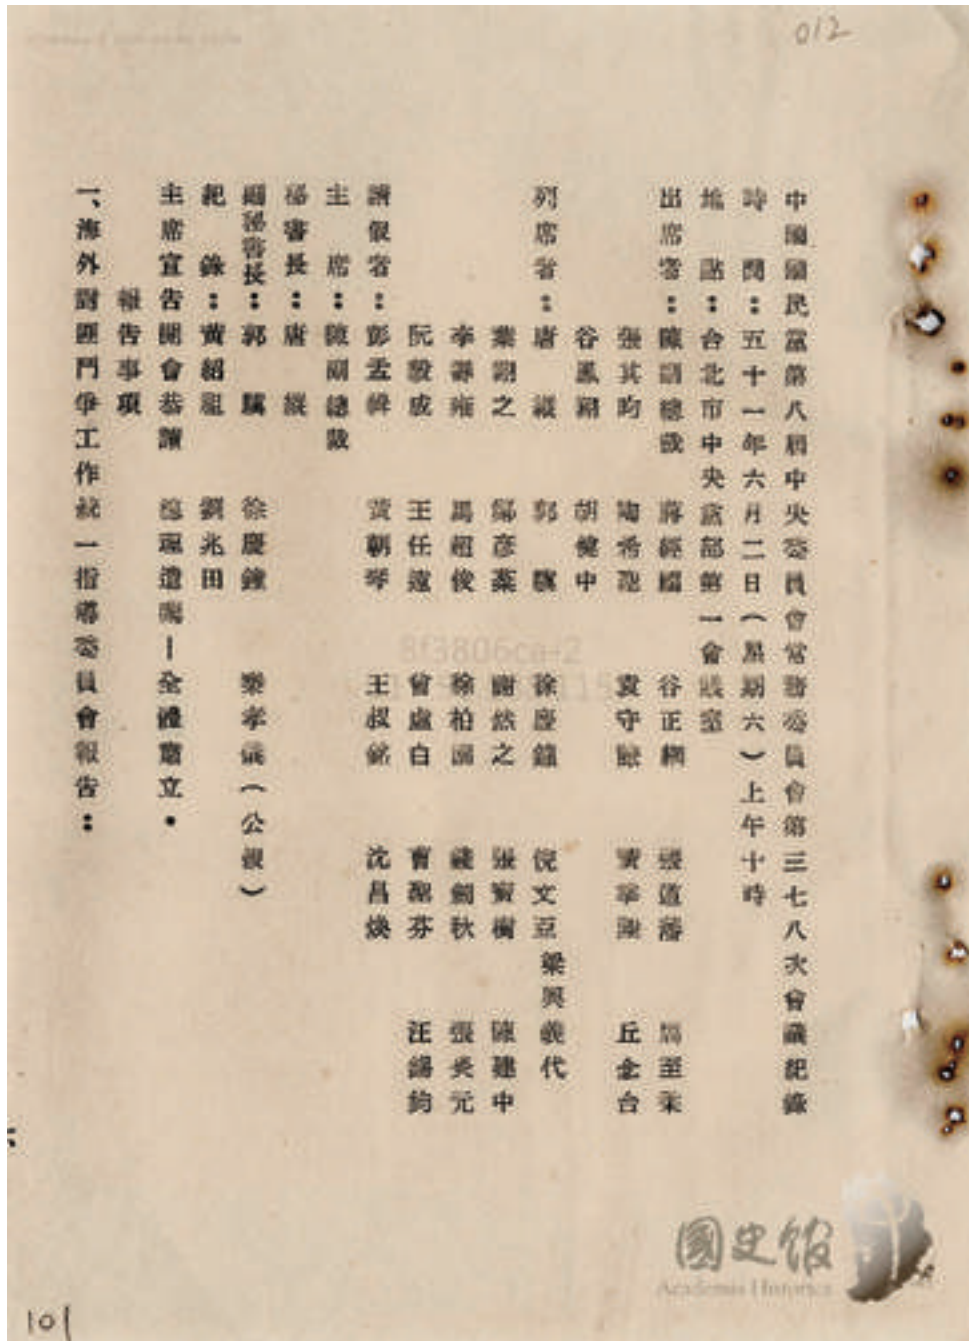 012
中國國民黨第八屆中央委員會常務委員會第三七八次會議紀錄
時間：五十一年六月二日（星期六）上午十時
地點：台北市中央黨部第一會議室
出席者：陳副總裁 蔣經國 谷正綱 張道藩 周至柔
張其昀 陶希聖 袁守謙 黃季陸 丘念台
谷鳳翔 胡健中
列席者：唐縱 郭驥 徐慶鐘 倪文亞 梁興義代
葉翔之 鄭彥棻 謝然之 張寶樹 陳建中
李壽雍 馬超俊 徐柏園 錢劍秋 張炎元
阮毅成 王任遠 曾虛白 曹聖芬 汪錫鈞
請假者：彭孟緝 黃朝琴 王叔銘 沈昌煥
主席：陳副總裁
秘書長：唐縱
副秘書長：郭驥 徐慶鐘 秦孝儀（公假）
紀錄：黃紹祖 劉兆田
主席宣告開會恭讀 總理遺囑—全體肅立。
報告事項
一、海外對匪鬥爭工作統一指導委員會報告：
8f3806ca-2
國史館
Academia Historica
101